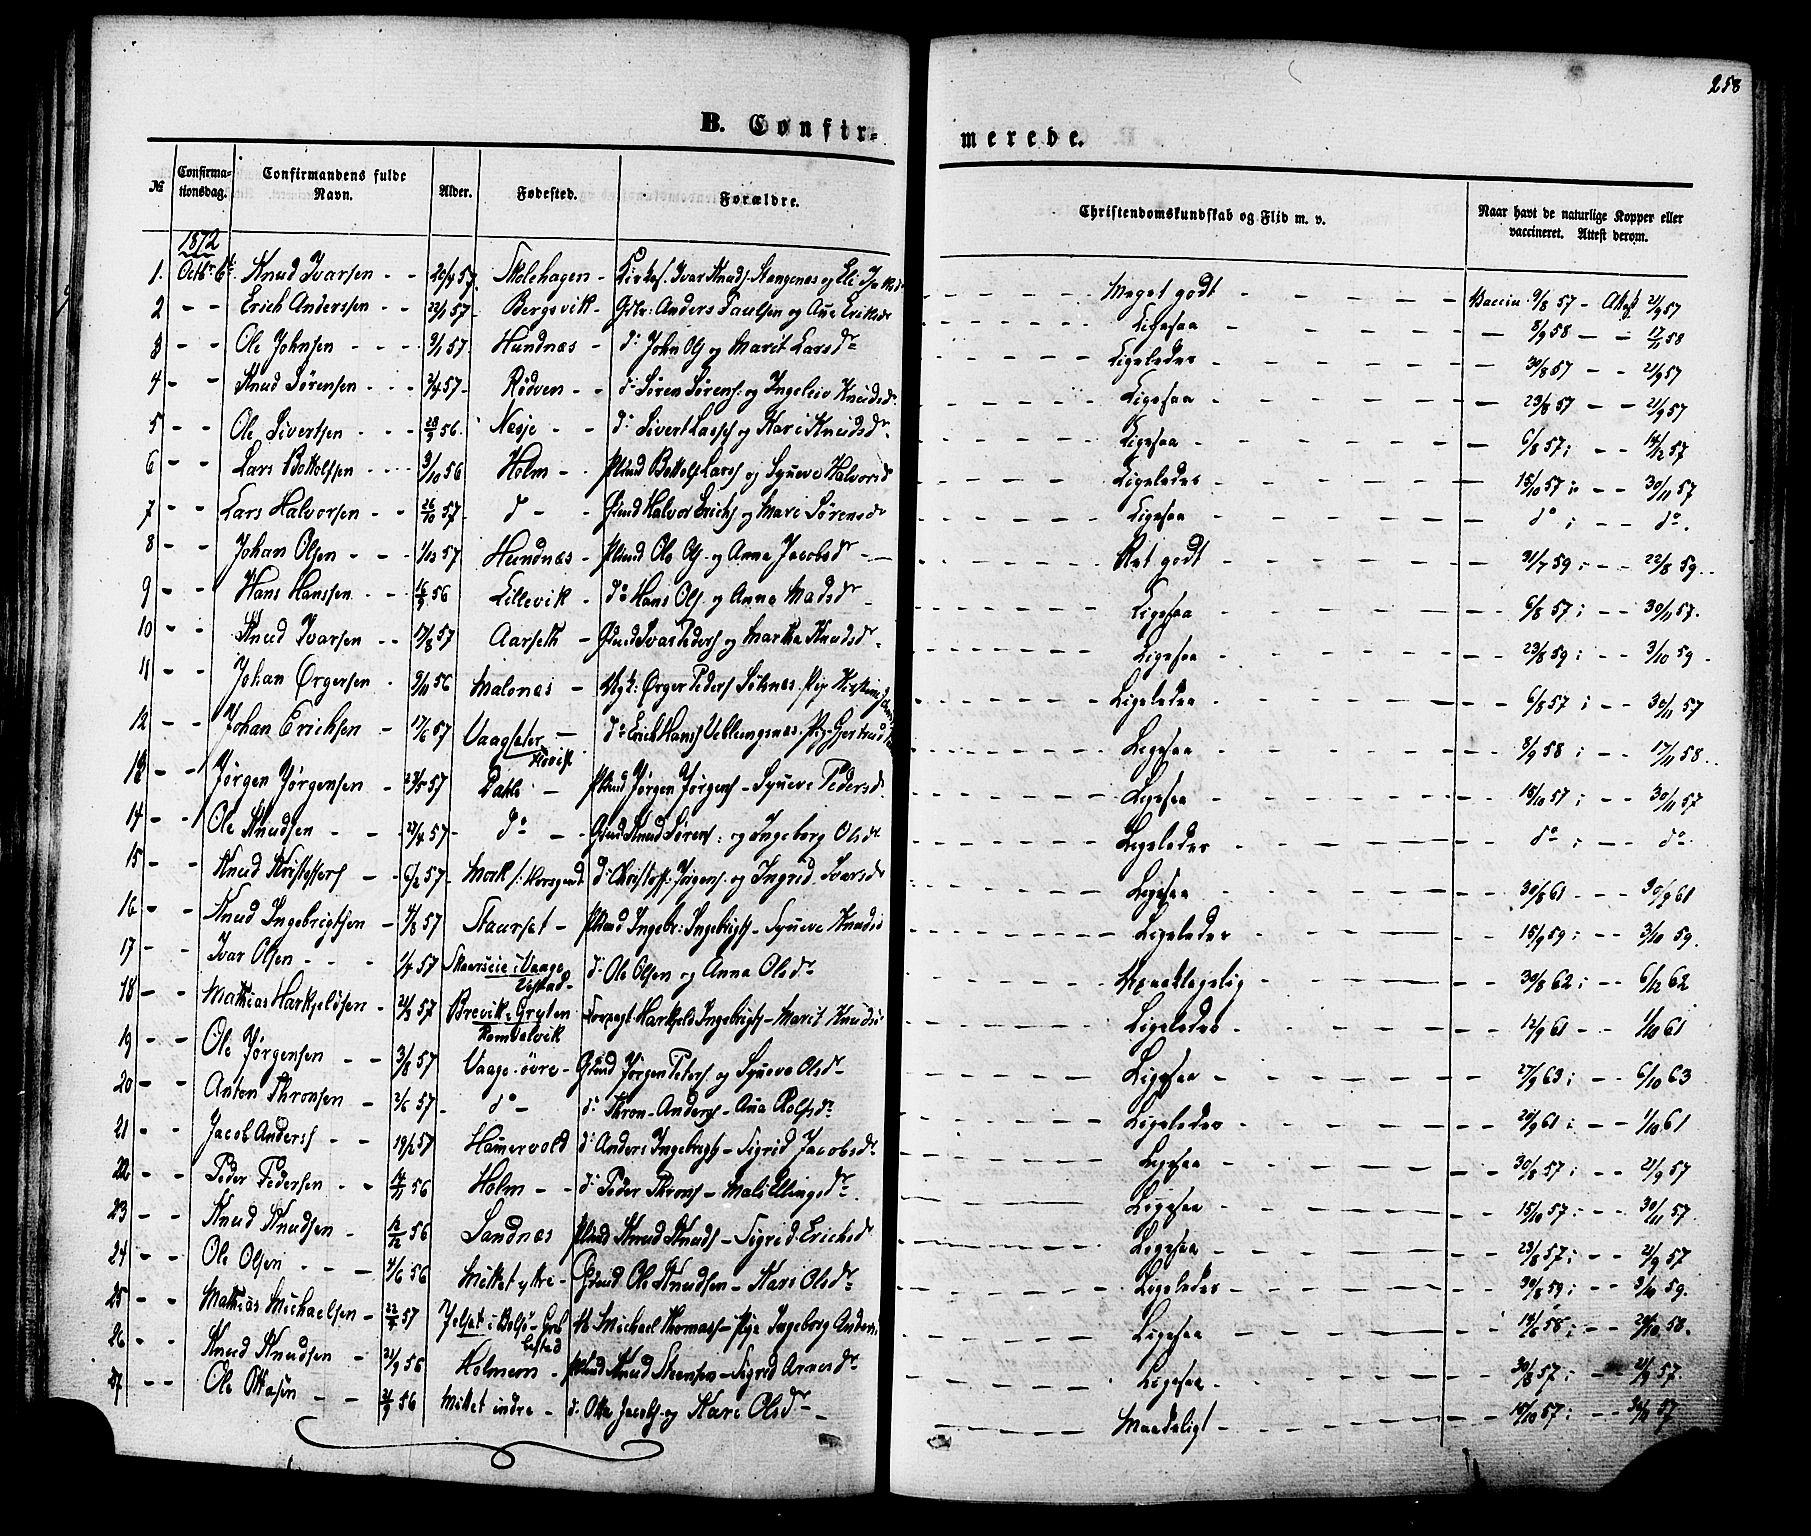 258
B. Confir- merede.
№ Confirma- tionsdag. Confirmandens fulde Navn. Alder. Fødested. Forældre. Christendomskundskab og Flid m. v. Naar havt de naturlige Kopper eller vaccineret. Attest derom.
1872
1. Octbr 6te Knud Ivarsen - - 20/4 57. Skolehagen - Kirkes. Ivar Knuds. Stengenæs og Eli Meget godt - Vaccin. 9/8 57 - Attest 21/9 57
2 - - Erich Anderssen - - 22/1 57. Bergsvik - Gbr: Anders Paulsen og Ane Eriksdr Ligesaa - 8/9 58 - - 17/11 58
3 - - Ole Johnsen - - - 9/1 57. Hundnæs - do John Ols. og Marit Larsdr Ligeledes - 30/8 57 - - 21/9 57
4 - - Knud Sørensen - - - 2/4 57. Rødven - - do Søren Sørens. og Ingeleiv Knudsdr Ligesaa - 23/8 57 - - 21/9 57
5 - - Ole Sivertsen - - - 56. Nesje - - do Sivert Larss og Kari Knudsdr Ligesaa - 6/8 57; - - 14/12 57
6 - - Lars Bottolfsen - - - 3/10 56 Holm - - Plmd Bottolf Larss og Synneve Halvorsd Ligeledes - 15/10 57; - - 30/11 57
7 - - Lars Halvorsen - - 26/10 57. do - - Gbmd Halvor Erichs og Mari Sørensdr Ligesaa - do; - - do.
8 - - Johan Olsen - - 1/12 57 Hundnæs - Plmd Ole Ols. og Anna Jacobsdr - Ret godt - 31/7 59; - - 22/8 59
9 - - Hans Hanssen - - 56 Lillevik - do Hans Ols. og Anna Madsdr - Ligesaa - 6/8 57; - - 30/11 57.
10 - - Knud Ivarsen - - 17/8 57 Aarseth - Gbmd Ivar Peders og Martha Knudsdr - Ligesaa - 23/8 59; - - 3/10 59
11 - - Johan Ørgersen - 9/11 56 Malonæs - Ungk: Ørger Peders Søknæs. Pige Ligeledes - 6/8 57; - - 30/11 57
12 - - Johan Erichsen - 17/6 57 Vaagsæter - do Erich Hanss Veblungsnæs. Pig. Gjertrud Ligesaa - 8/9 58; - - 17/11 58
13 - - Jørgen Jørgensen - 23/5 57 Dahle - Plmd Jørgen Jørgens - Synneve Pedersd. Ligesaa - 15/10 57; - - 30/11 57
14 - - Ole Knudsen - - 27/4 57 - do - - Gbmd Knud Sørens: og Ingeborg Olsdr Ligeledes - do; - - do.
15 - - Knud Kristoffers - - 6/2 57 - Mork /: do Christoff: Jørgens. og Ingrid Ivarsdr Ligesaa - 30/8 61 - - 30/9 61
16 - - Knud Ingebrigtsen - 4/8 57 Staurset - Plmd Ingebr: Ingebrigts - Synneve Knudsd Ligeledes - 15/9 59; - - 3/10 59.
17 - - Ivar Olsen - - - 1/7 57 i Vaage do Ole Olsen og Anna Olsdr Upaaklagelig - 30/8 62; - - 6/12 62
18 - - Mathias Harkjeldsen - 24/3 57 Brevik i Grytten Harkjeld Ingebrigts - Marit Knudsd Ligeledes - 12/9 61 - - 1/10 61
19 - - Ole Jørgensen - - 3/8 57 Vaage øvre - Gbmd Jørgen Peters og Synneve Olsdr - Ligesaa - 27/9 63; - - 6/10 63
20 - - Anton Thronsen - 2/6 57 - do - do Thron Anders - Ane Rolfsdr Ligeledes - 20/9 61; - - 1/10 61
21 - - Jacob Anders - - 19/2 57 Hammervold do Anders Ingebrigts - Sigrid Jacobsdr Ligesaa - 30/8 57; - - 21/9 57
22 - - Peder Pedersen - - 56 Holm - - do Peder Throns - Mali Ellingsdr. Ligesaa - 15/10 57; - - 30/11 57.
23 - - Knud Knudsen - 56 Sandnæs Plmd Knud Knuds - Sigrid Ericksd Ligesaa - 23/8 57; - - 21/9 57
24 - - Ole Olsen - - - 4/6 56 Mittet ytre - Gbmd. Ole Knudsen - Kari Olsdr Ligeledes - 30/8 59; - - 3/10 59.
25 - - Mathias Michaelsen - 57 Jelset i Bolsø - Michael Thomass - Pige Ingeborg Andersd Ligesaa - 58; - - 58.
26 - - Knud Knudsen - 21/9 56 Holmem - Plmd Knud Steensen - Sigrid Arnesdr Ligesaa - 30/8 57; - - 21/9 57.
27 - - Ole Ottosen - - 56 Mittet indre - do Otto Jacobs. og Kari Olsdr - Maadeligt - 57; - - 57